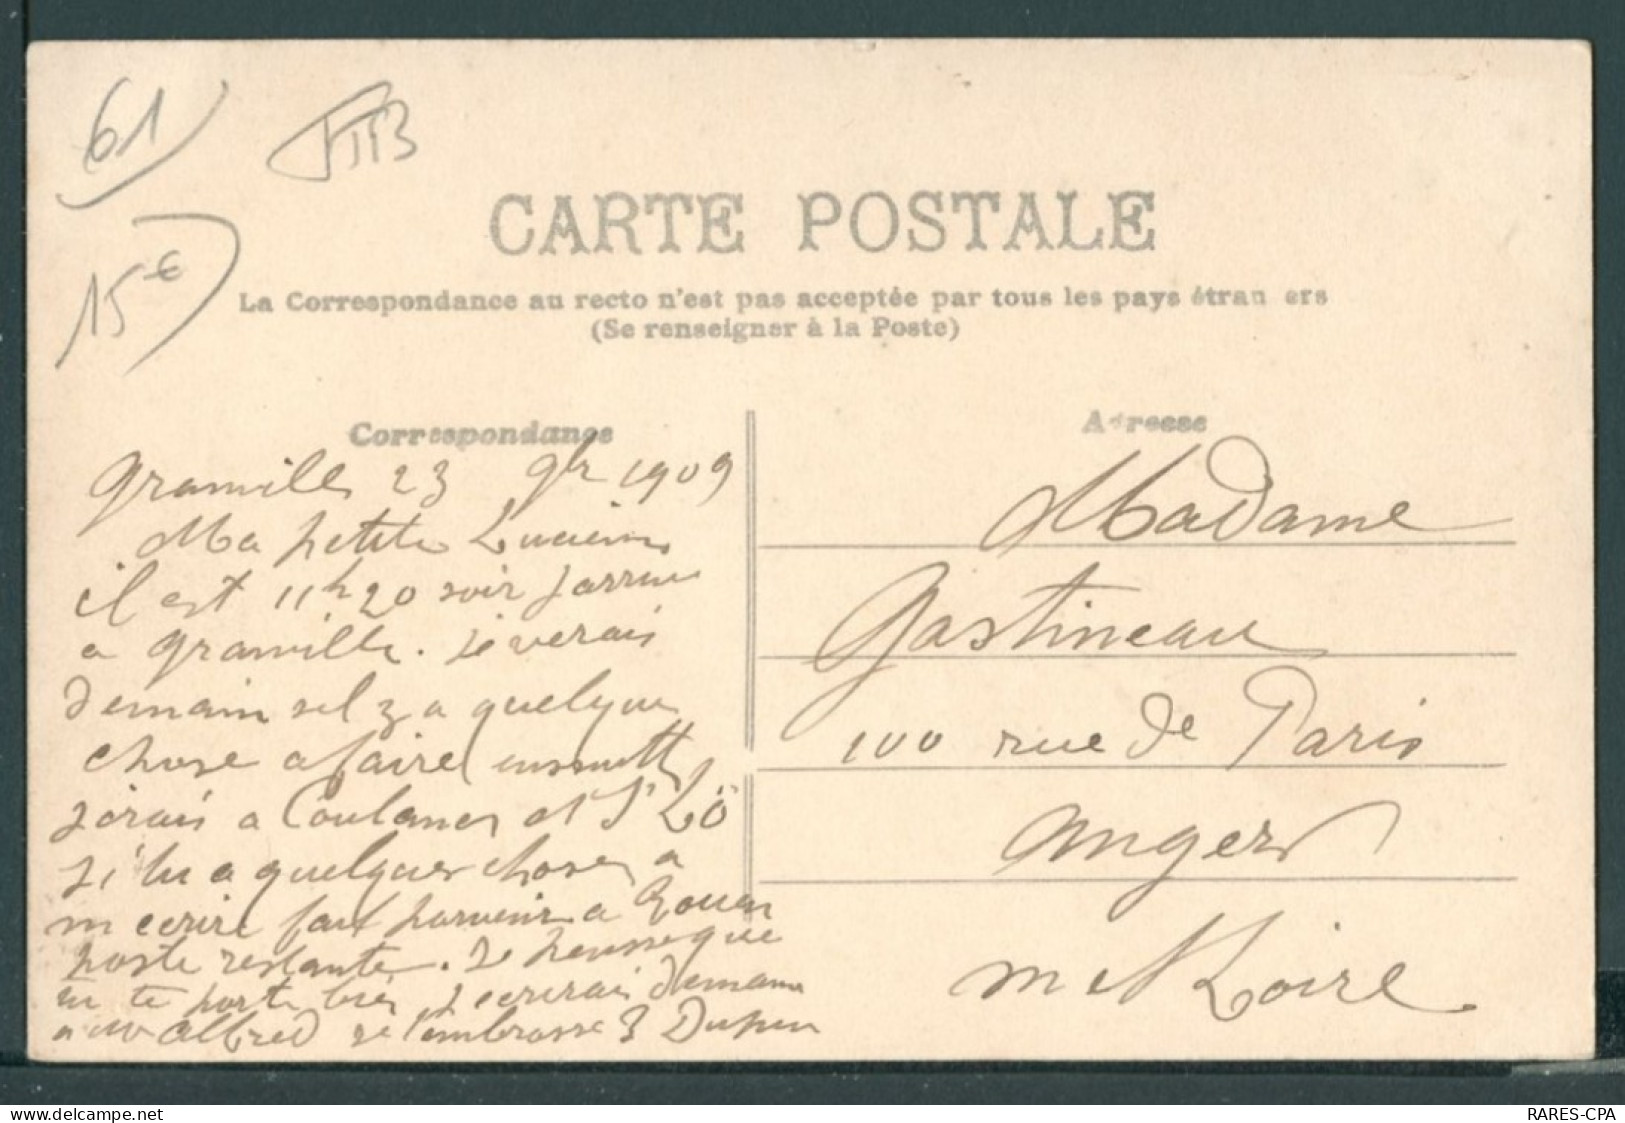 61
15€
CARTE POSTALE
La Correspondance au recto n'est pas acceptée par tous les pays étran ers
(Se renseigner à la Poste)
Correspondance
Adresse
Granville 23 9br 1909
Ma petite Lucienne
il est 11h20 soir jarrive
a Granville. je verais
demain sel y a quelque
chose a faire ensuitte
j'irais a Coutances et St Lô
si tu a quelques choses a
m ecrire fait parvenir a Rouen
poste restante. Je pensse que
tu te porte bien j ecrirais demain
a Mr Alfred je t'embrasse
Madame
Gastineau
100 rue de Paris
Angers
M et Loire
www.delcampe.net
RARES-CPA